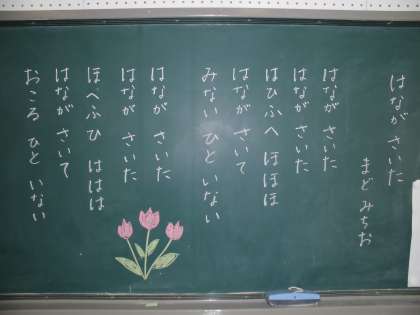 はなが さいた
まど みちお
はなが さいた
はなが さいた
はひふへ ほほほ
はなが さいて
みない ひと いない
はなが さいた
はなが さいた
ほへふひ ははは
はなが さいて
おころ ひと いない